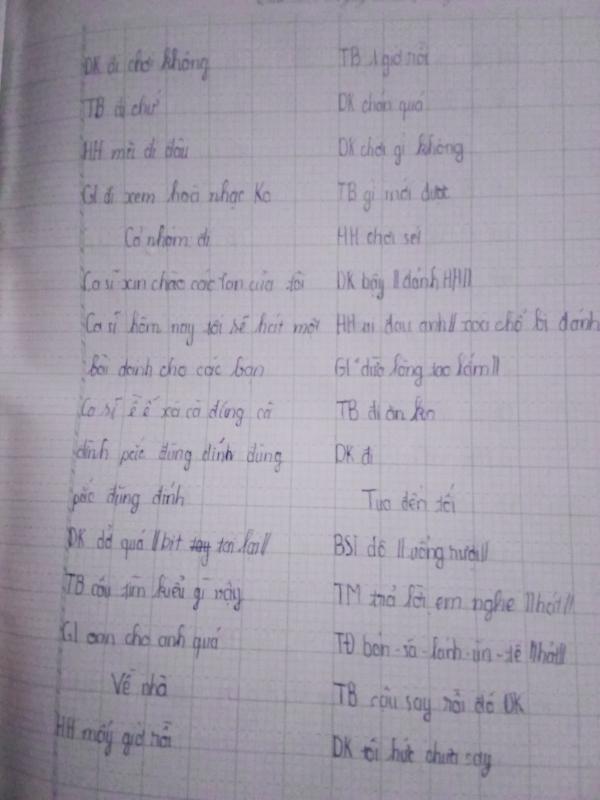 DK đi chơi không
TB đi chứ
HH mà đi đâu
GI đi xem hoà nhạc Ko
Cả nhóm đi
Ca sĩ xin chào các fan của tôi
Ca sĩ hôm nay tôi sẽ hát một
bài dành cho các bạn
Ca sĩ ê ế xà cà đúng cà
dính pắc đũng dính đũng
pắc đũng dính
DK dở quá //bịt tai lại//
TB cậu tìm kiểu gì vậy
GI oan cho anh quá
Về nhà
HH mấy giờ rồi
TB 1 giờ rồi
DK chán quá
DK chơi gì không
TB gì mới được
HH chơi sẽi
DK bậy //đánh HH//
HH ai đau anh// xoa chỗ bị đánh
GI "được lòng tao lắm//
TB đi ăn ko
DK đi
Tua đến tối
BSI dô //uống rượu//
TM trả lời em nghe //hát//
TĐ bôn-sà-lánh-ùn-tê //hát//
TB cậu say rồi đó DK
DK tôi hức chưa say